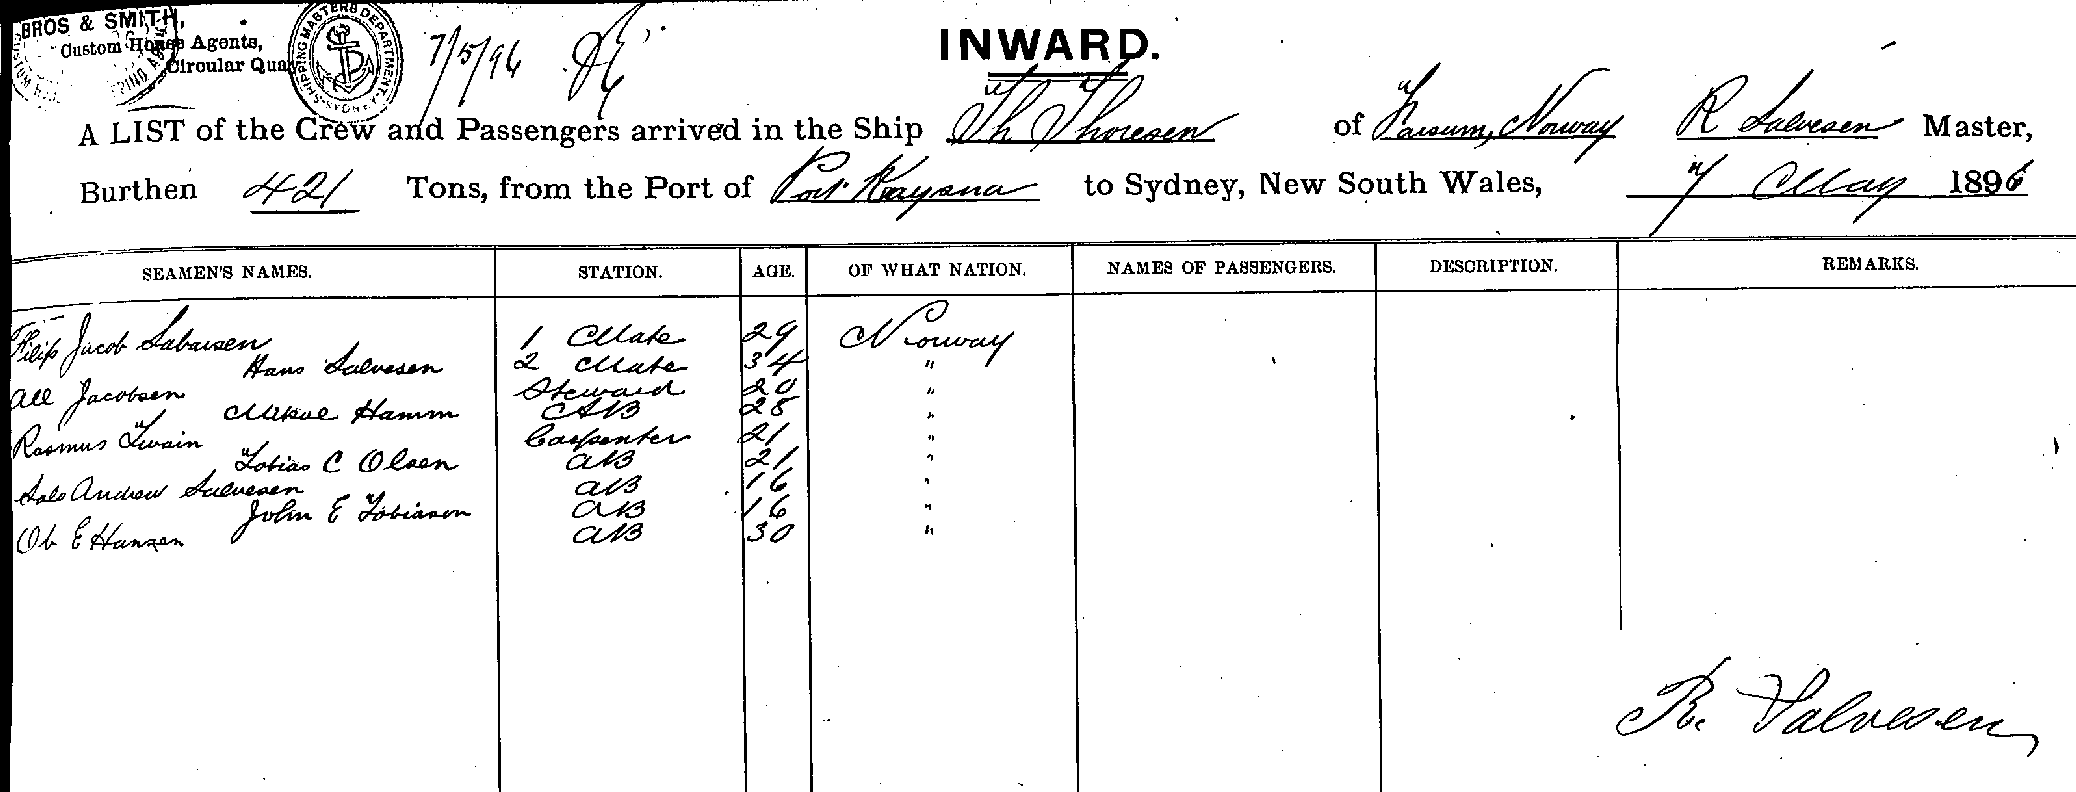 BROS & SMITH,
Custom House Agents,
Circular Quay
SHIPPING MASTERS DEPARTMENT SYDNEY
7/5/96
INWARD.
A LIST of the Crew and Passengers arrived in the Ship Th Thoresen of Farsund, Norway R Salvesen Master,
Burthen 421 Tons, from the Port of Port to Sydney, New South Wales, 7 May 1896
SEAMEN'S NAMES. STATION. AGE. OF WHAT NATION. NAMES OF PASSENGERS. DESCRIPTION. REMARKS.
Jacob 1 Mate 29 Norway
Hans Salvesen 2 Mate 34 "
Jacobsen Steward 20 "
Hamm AB 28 "
Rasmus Twain Carpenter 21 "
Tobias C Olsen AB 21 "
Andrew Salvesen AB 16 "
John E Tobiason AB 16 "
E Hansen AB 30 "
R. Salvesen